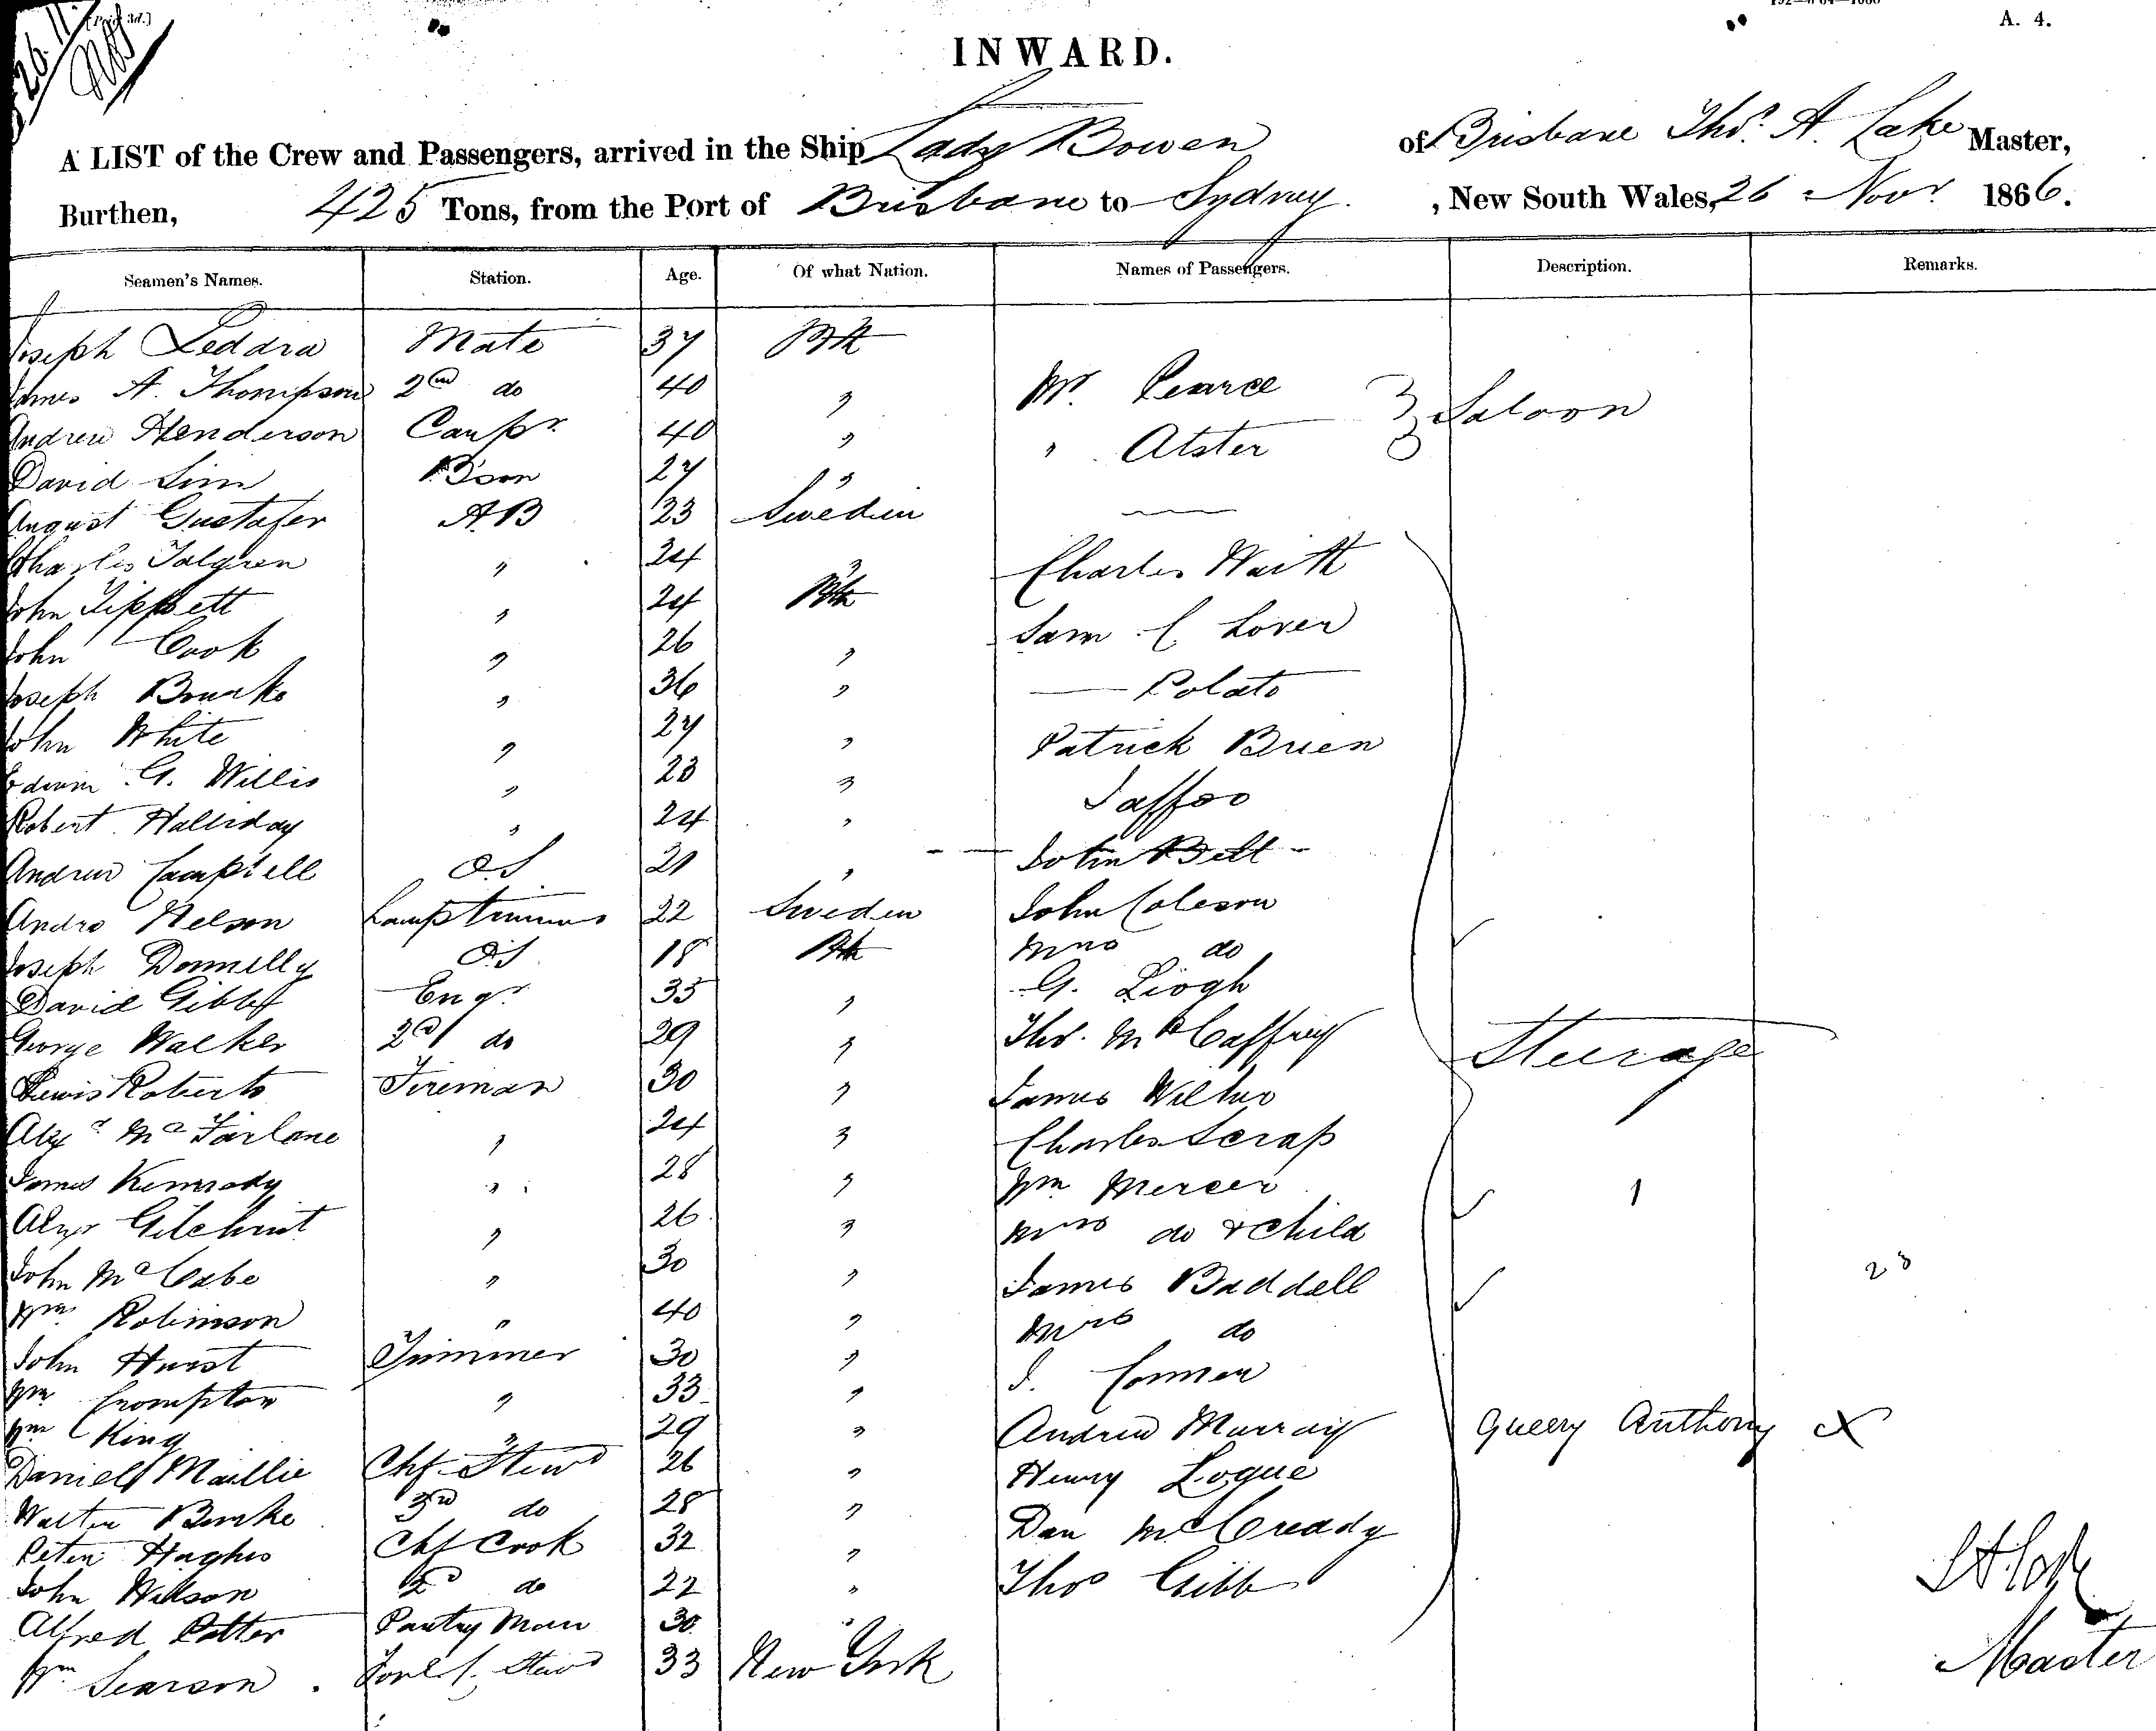 [Price 3d.]
A. 4.
INWARD.
A LIST of the Crew and Passengers, arrived in the Ship Lady Bowen of Brisbane Thos. A. Lake Master,
Burthen, 425 Tons, from the Port of Brisbane to Sydney. , New South Wales, 26 Novr 1866.
Seamen's Names. Station. Age. Of what Nation. Names of Passengers. Description. Remarks.
Joseph Leddra Mate 37 Bth
James A. Thompson 2nd do 40 " Mr. Pearce Saloon
Andrew Henderson Carpr 40 " " Atster
David Sim B'son 27 "
August Gustafer AB 23 Sweden
Charles Talgren " 24 " Charles Waith
John Tippett " 24 Bth Sam C Lover
John Cook " 26 "
Joseph Bourke " 36 " Polato
John White " 27 " Patrick Brien
Edwin G. Willis " 23 " Jaffoo
Robert Halliday " 24 "
Andrew Campbell OS 21 " John Bell
Andro Nelson Lamptrimmer 22 Sweden John Coleson
Joseph Donnelly OS 18 Bth Mrs do
David Gibb Engr 35 " G. Liogh
George Walker 2d do 29 " Thos. McCaffrey Steerage
Lewis Roberts Fireman 30 " James
Alexr McFarlane " 24 " Charles Scrap
James Kennedy " 28 " Wm Mercer 1
Alexr Gilchrist " 26 " Mrs do & Child
John McCabe " 30 " James Baddell 23
Wm Robinson " 40 " Mrs do
John Hurst Trimmer 30 " J. Connen
Wm Crompton " 33 "
Wm King " 29 " Andrew Murray Queery Anthony X
Daniel Maillie Chf Stewd 26 " Henry Logue
Walter Burke 3rd do 28 " Dan McCready
Peter Hughes Chf Cook 32 "
John Wilson 2d do 22 " Thos Gibb
Alfred Potter Pantry Man 30 "
Wm Searson Stewd 33 New York
Master